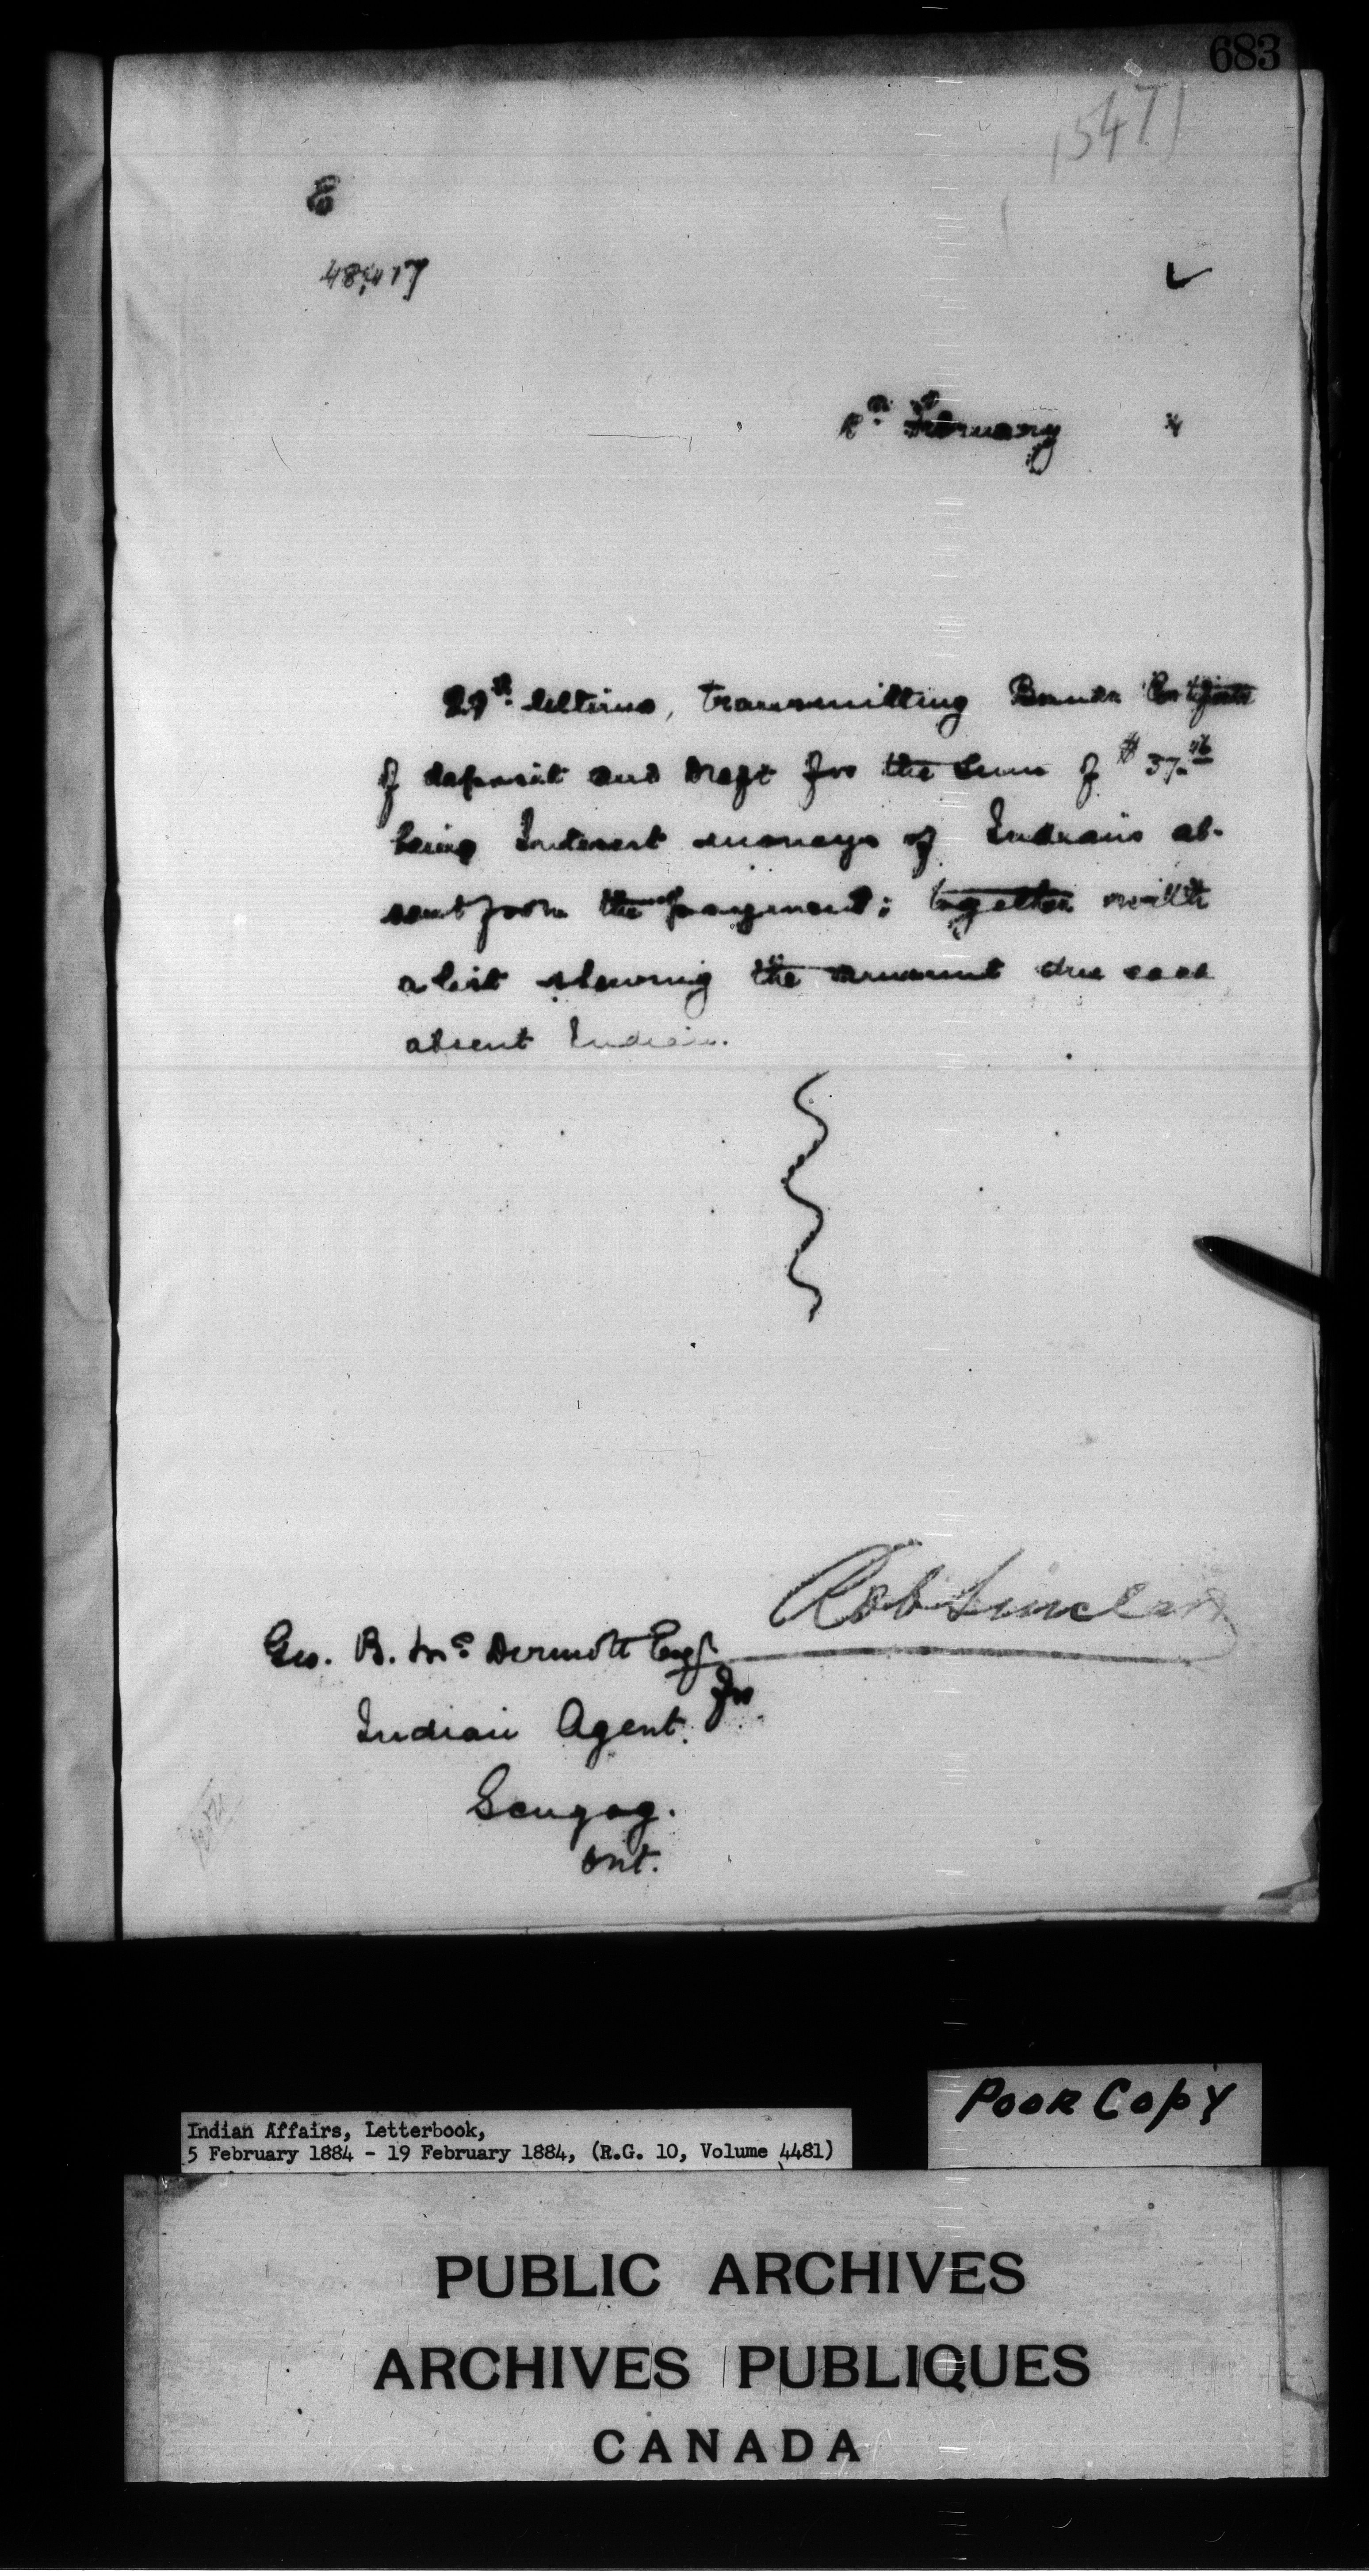 683
E
February
29th ultimo, transmitting Bank Certificate
of deposit and draft for the sum of $37.
being Interest moneys of Indians ab-
sent from the payment; together with
a list shewing the amount due each
absent Indian.
Rob Sinclair
Geo. B. McDermott Esq
for
Indian Agent.
Scugog.
Ont.
POOR COPY
Indian Affairs, Letterbook,
5 February 1884 - 19 February 1884, (R.G. 10, Volume 4481)
PUBLIC ARCHIVES
ARCHIVES PUBLIQUES
CANADA